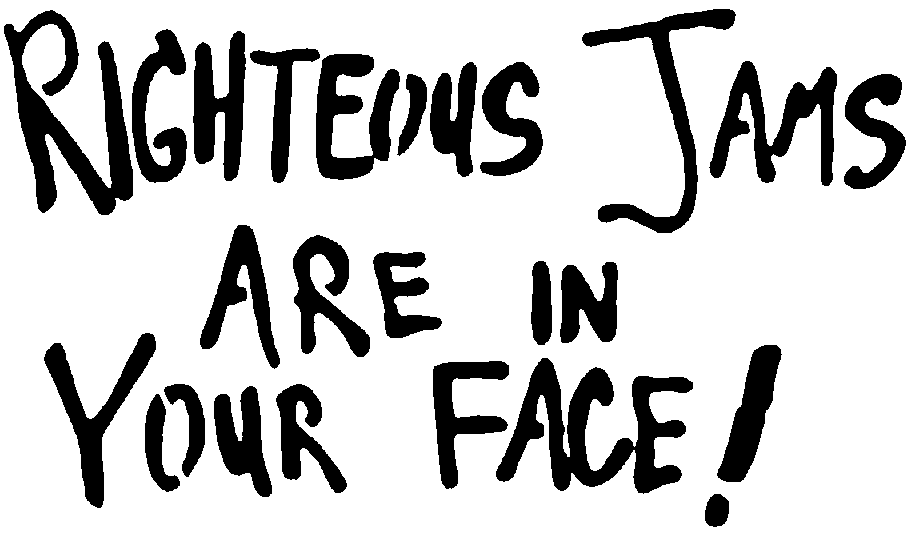 RIGHTEOUS JAMS
ARE IN
YOUR FACE!